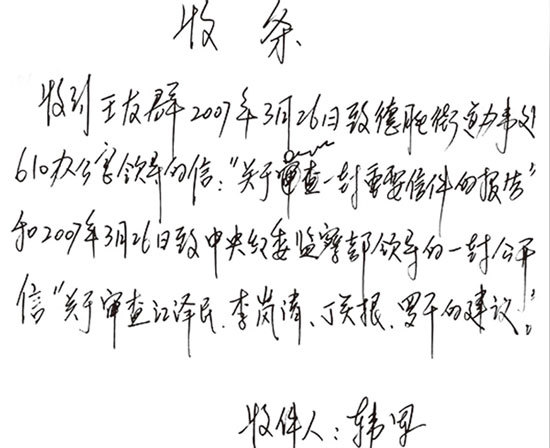 收条
收到王友群2007年3月26日致德胜街道办事处
610办公室领导的信：“关于审查一封重要信件的报告”
和2007年3月26日致中央纪委监察部领导的一封公开
信“关于审查江泽民、李岚清、丁关根、罗干的建议”。
收件人：韩